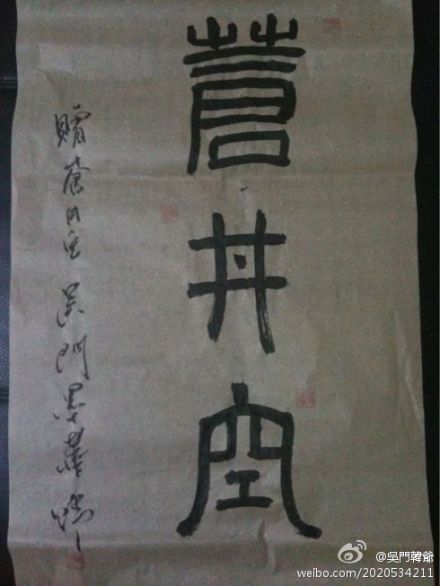 蒼井空
贈蒼井空 吳門墨
@吳門韓爺
weibo.com/2020534211